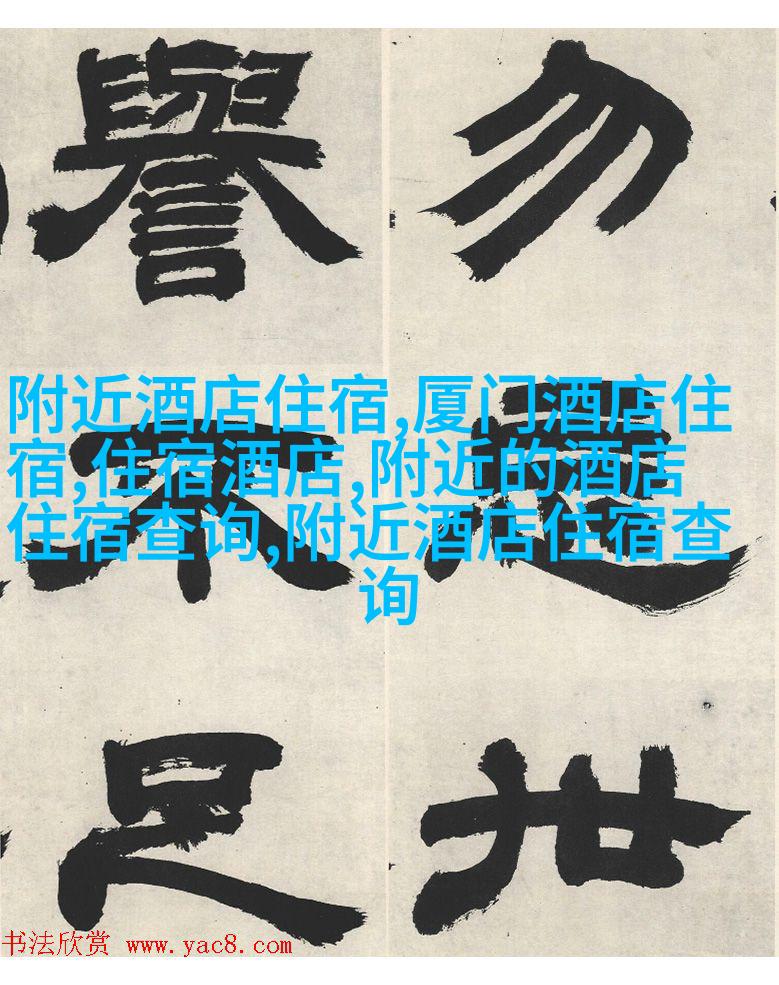 勿世
譽不足
附近酒店住宿,厦门酒店住
宿,住宿酒店,附近的酒店
住宿查询,附近酒店住宿查
询
书法欣赏 www.yac8.com